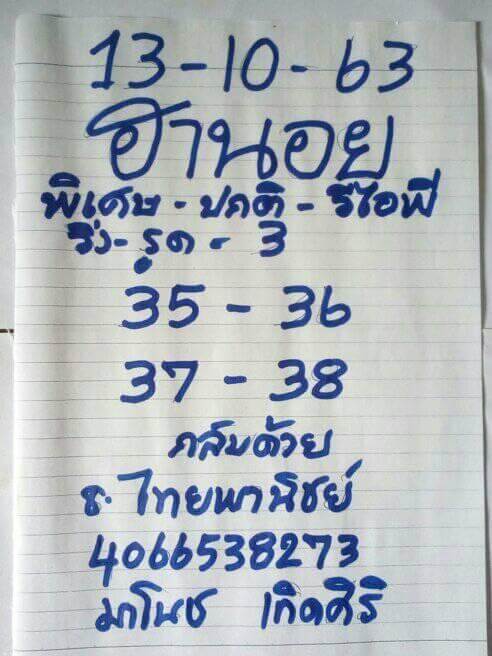 13-10-63
ฮานอย
พิเศษ - ปกติ - วีไอพี
วิ่ง - รูด - 3
35 - 36
37 - 38
กลับด้วย
ธ. ไทยพานิชย์
4066538273
มาโนช เกิดศิริ